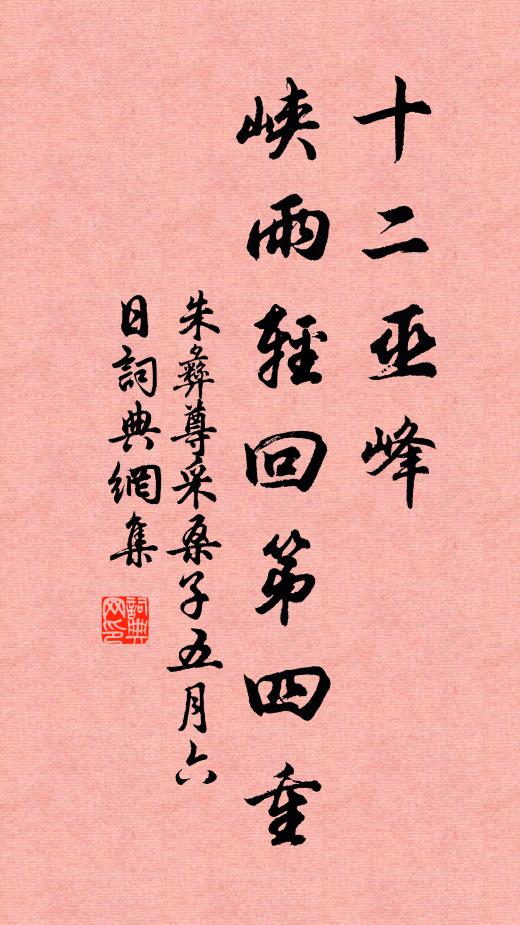 十二巫峰
峽雨輕回第四重
朱彝尊采桑子五月六
日詞典網集
詞典網印